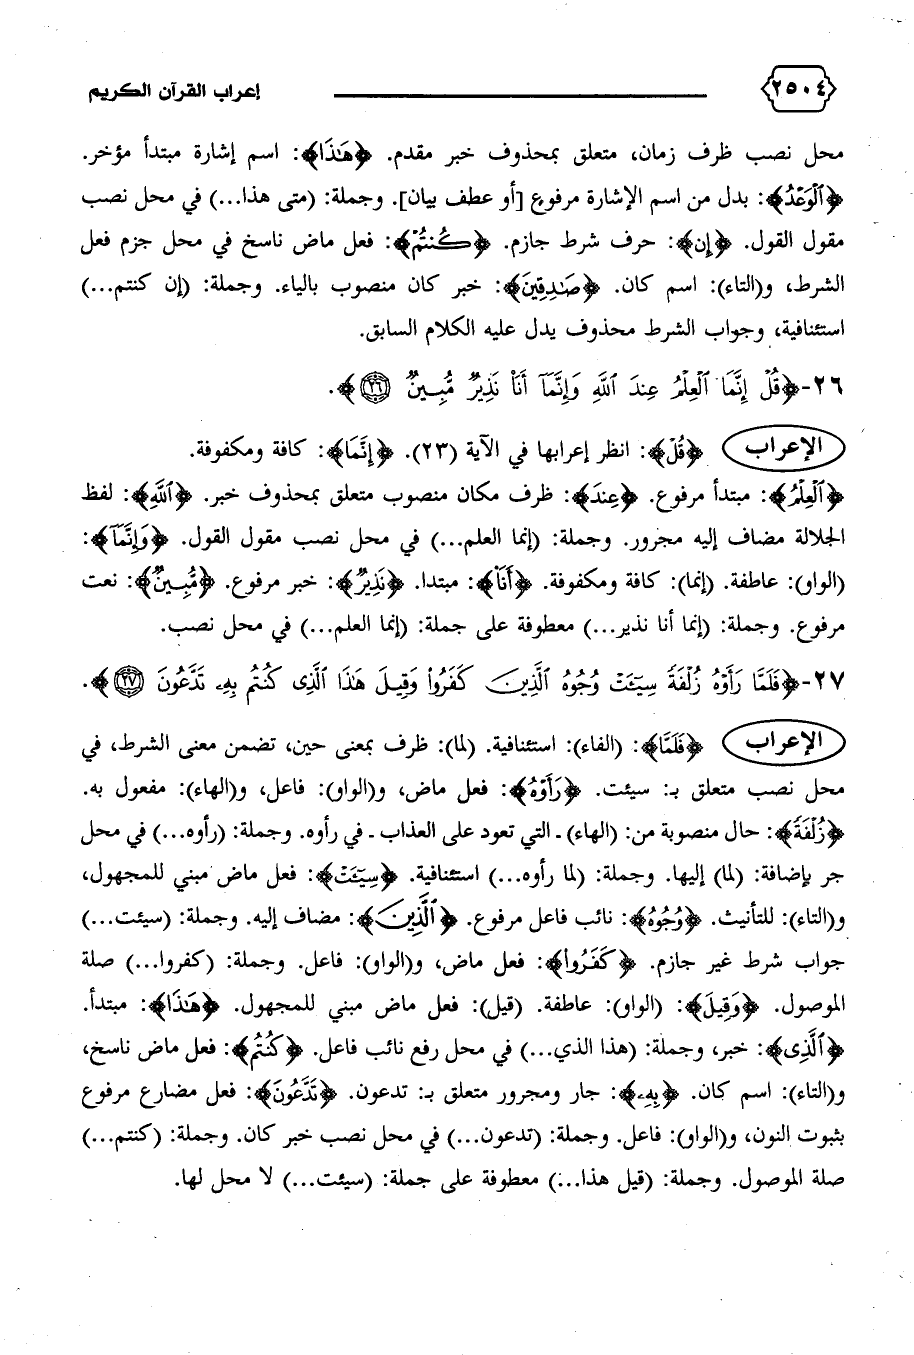 ٢٥٠٤ إعراب القرآن الكريم
محل نصب ظرف زمان، متعلق بمحذوف خبر مقدم. ﴿هَٰذَا﴾: اسم إشارة مبتدأ مؤخر.
﴿ٱلْوَعْدُ﴾: بدل من اسم الإشارة مرفوع [أو عطف بيان]. وجملة: (متى هذا...) في محل نصب
مقول القول. ﴿إِن﴾: حرف شرط جازم. ﴿كُنتُمْ﴾: فعل ماض ناسخ في محل جزم فعل
الشرط، و(التاء): اسم كان. ﴿صَٰدِقِينَ﴾: خبر كان منصوب بالياء. وجملة: (إن كنتم...)
استئنافية، وجواب الشرط محذوف يدل عليه الكلام السابق.
٢٦-﴿قُلْ إِنَّمَا ٱلْعِلْمُ عِندَ ٱللَّهِ وَإِنَّمَآ أَنَا۠ نَذِيرٌ مُّبِينٌ ٢٦﴾.
الإعراب ﴿قُلْ﴾: انظر إعرابها في الآية (٢٣). ﴿إِنَّمَا﴾: كافة ومكفوفة.
﴿ٱلْعِلْمُ﴾: مبتدأ مرفوع. ﴿عِندَ﴾: ظرف مكان منصوب متعلق بمحذوف خبر. ﴿ٱللَّهِ﴾: لفظ
الجلالة مضاف إليه مجرور. وجملة: (إنما العلم...) في محل نصب مقول القول. ﴿وَإِنَّمَآ﴾:
(الواو): عاطفة. (إنما): كافة ومكفوفة. ﴿أَنَا۠﴾: مبتدا. ﴿نَذِيرٌ﴾: خبر مرفوع. ﴿مُّبِينٌ﴾: نعت
مرفوع. وجملة: (إنما أنا نذير...) معطوفة على جملة: (إنما العلم...) في محل نصب.
٢٧-﴿فَلَمَّا رَأَوْهُ زُلْفَةً سِيٓـَٔتْ وُجُوهُ ٱلَّذِينَ كَفَرُوا۟ وَقِيلَ هَٰذَا ٱلَّذِى كُنتُم بِهِۦ تَدَّعُونَ ٢٧﴾.
الإعراب ﴿فَلَمَّا﴾: (الفاء): استئنافية. (لما): ظرف بمعنى حين، تضمن معنى الشرط، في
محل نصب متعلق بـ: سيئت. ﴿رَأَوْهُ﴾: فعل ماض، و(الواو): فاعل، و(الهاء): مفعول به.
﴿زُلْفَةً﴾: حال منصوبة من: (الهاء) ـ التي تعود على العذاب ـ في رأوه. وجملة: (رأوه...) في محل
جر بإضافة: (لما) إليها. وجملة: (لما رأوه...) استئنافية. ﴿سِيٓـَٔتْ﴾: فعل ماض مبني للمجهول،
و(التاء): للتأنيث. ﴿وُجُوهُ﴾: نائب فاعل مرفوع. ﴿ٱلَّذِينَ﴾: مضاف إليه. وجملة: (سيئت...)
جواب شرط غير جازم. ﴿كَفَرُوا۟﴾: فعل ماض، و(الواو): فاعل. وجملة: (كفروا...) صلة
الموصول. ﴿وَقِيلَ﴾: (الواو): عاطفة. (قيل): فعل ماض مبني للمجهول. ﴿هَٰذَا﴾: مبتدأ.
﴿ٱلَّذِى﴾: خبر، وجملة: (هذا الذي...) في محل رفع نائب فاعل. ﴿كُنتُم﴾: فعل ماض ناسخ،
و(التاء): اسم كان. ﴿بِهِۦ﴾: جار ومجرور متعلق بـ: تدعون. ﴿تَدَّعُونَ﴾: فعل مضارع مرفوع
بثبوت النون، و(الواو): فاعل. وجملة: (تدعون...) في محل نصب خبر كان. وجملة: (كنتم...)
صلة الموصول. وجملة: (قيل هذا...) معطوفة على جملة: (سيئت...) لا محل لها.